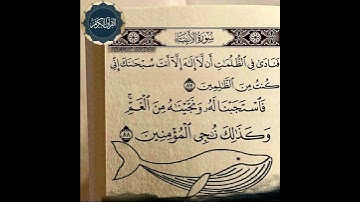 القرآن الكريم
سورة الأنبياء
فَنَادَىٰ فِي ٱلظُّلُمَٰتِ أَن لَّآ إِلَٰهَ إِلَّآ أَنتَ سُبْحَٰنَكَ إِنِّي
كُنتُ مِنَ ٱلظَّٰلِمِينَ ٨٧
فَٱسْتَجَبْنَا لَهُۥ وَنَجَّيْنَٰهُ مِنَ ٱلْغَمِّ ۚ
وَكَذَٰلِكَ نُۨجِي ٱلْمُؤْمِنِينَ ٨٨